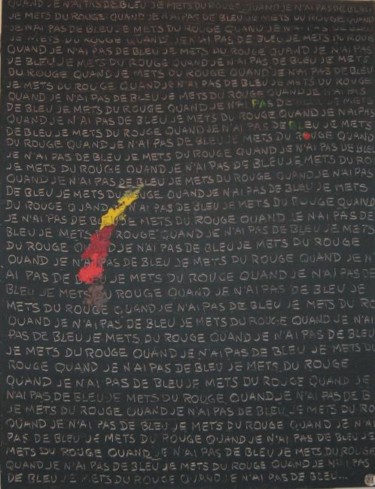 QUAND JE N'AI PAS DE BLEU JE METS DU ROUGE QUAND JE N'AI PAS DE BLEU
JE METS DU ROUGE QUAND JE N'AI PAS DE BLEU JE METS DU ROUGE
QUAND JE N'AI PAS DE BLEU JE METS DU ROUGE QUAND JE N'AI PAS
DE BLEU JE METS DU ROUGE QUAND JE N'AI PAS DE BLEU JE METS
DU ROUGE QUAND JE N'AI PAS DE BLEU JE METS DU ROUGE
QUAND JE N'AI PAS DE BLEU JE METS DU ROUGE QUAND JE N'AI PAS
DE BLEU JE METS DU ROUGE QUAND JE N'AI PAS DE
DE BLEU JE METS DU ROUGE QUAND JE N'AI PAS DE BLEU JE METS
DU ROUGE QUAND
JE N'AI PAS DE BLEU JE METS DU ROUGE QUAND JE N'AI PAS DE
BLEU JE METS DU ROUGE QUAND JE N'AI PAS DE BLEU JE METS DU ROUGE
QUAND JE N'AI PAS DE BLEU JE METS DU ROUGE QUAND JE N'AI PAS
DE BLEU JE METS DU ROUGE QUAND JE N'AI PAS DE BLEU JE METS
DU ROUGE QUAND JE N'AI PAS DE BLEU JE METS DU ROUGE QUAND
JE N'AI PAS DE BLEU JE METS DU ROUGE QUAND JE N'AI PAS DE
BLEU JE METS DU ROUGE QUAND JE N'AI PAS DE BLEU JE METS
DU ROUGE QUAND JE N'AI PAS DE BLEU JE METS DU ROUGE
QUAND JE N'AI PAS DE BLEU JE METS DU ROUGE QUAND JE N'
AI PAS DE BLEU JE METS DU ROUGE QUAND JE N'AI PAS DE
BLEU JE METS DU ROUGE QUAND JE N'AI PAS DE BLEU JE
METS DU ROUGE QUAND JE N'AI PAS DE BLEU JE METS DU RO
QUAND JE N'AI PAS DE BLEU JE METS DU ROUGE QUAND JE N'AI
PAS DE BLEU JE METS DU ROUGE QUAND JE N'AI PAS DE BLEU
JE METS DU ROUGE QUAND JE N'AI PAS DE BLEU JE METS DU
ROUGE QUAND JE N'AI PAS DE BLEU JE METS DU ROUGE
QUAND JE N'AI PAS DE BLEU JE METS DU ROUGE QUAND JE
N'AI PAS DE BLEU JE METS DU ROUGE QUAND JE N'AI PAS DE B
JE METS DU ROUGE QUAND JE N'AI PAS DE BLEU JE METS DU ROUGE
QUAND JE N'AI PAS DE BLEU JE METS DU ROUGE QUAND JE N'AI
PAS DE BLEU JE METS DU ROUGE QUAND JE N'AI PAS DE BLEU
METS DU ROUGE QUAND JE N'AI PAS DE BLEU JE METS DU ROUGE
QUAND JE N'AI PAS DE BLEU JE METS DU ROUGE QUAND JE N'AI PAS DE BLEU...